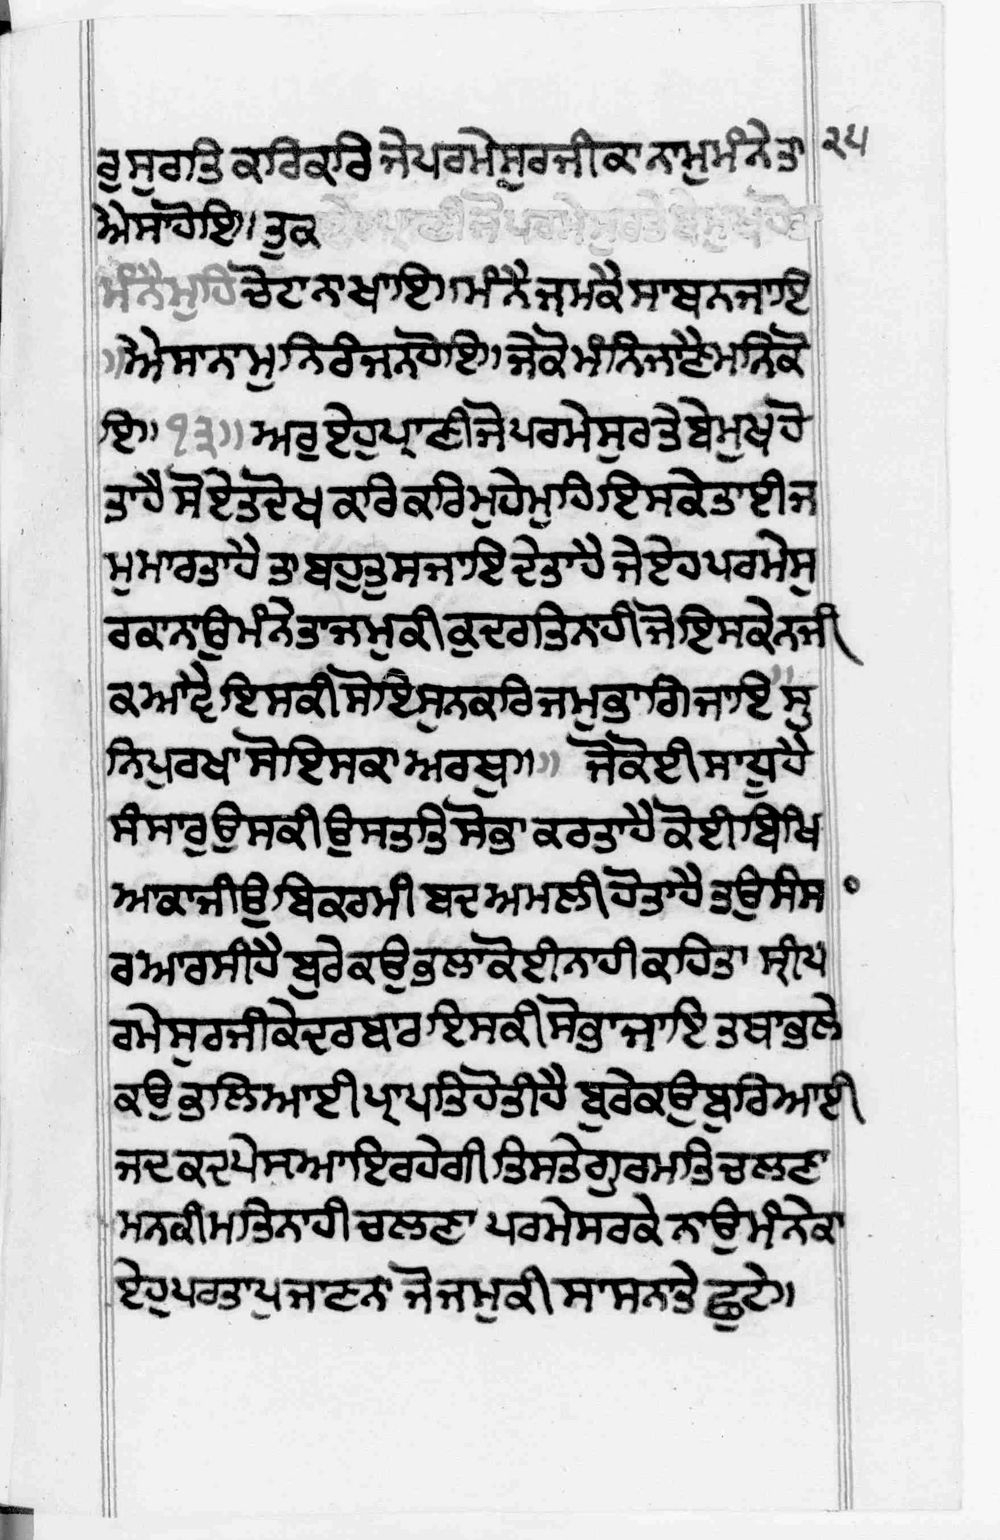 ਰੁ ਸੁਰਤਿ ਕਰਿਕਰਿ ਜੇਪਰਮੇਸੁਰਜੀਕਾ ਨਾਮੁਮੰਨੇਤਾ ੨੫
ਐਸਾਹੋਇ॥ ਤੁਕ ਏਹੁਪ੍ਰਾਣੀਜੋਪਰਮੇਸੁਰਤੇਬੇਮੁਖਹੋਤਾ
ਮੰਨੈਮੁਹਿਚੋਟਾਨਾਖਾਇ॥ਮੰਨੈਜਮਕੈਸਾਥਨਜਾਇ
॥ਐਸਾਨਾਮੁਨਿਰੰਜਨਹੋਇ॥ਜੇਕੋਮੰਨਿਜਾਣੈਮਨਿਕੋ
ਇ॥੧੩॥ਅਰੁਏਹੁਪ੍ਰਾਣੀਜੋਪਰਮੇਸੁਰਤੇਬੇਮੁਖਹੋ
ਤਾਹੈ ਸੋਏਤਦੋਖਕਰਿਕਰਿਮੁਹੇਮੁਹਿਇਸਕੇਤਾਈਜ
ਮੁਮਾਰਤਾਹੈ ਤਾਬਹੁਤੁਸਜਾਇਦੇਤਾਹੈ ਜੇਏਹਪਰਮੇਸੁ
ਰਕਾਨਾਉਮੰਨੇਤਾਜਮੁਕੀਕੁਦਰਤਿਨਾਹੀਜੋਇਸਕੇਨਜੀ
ਕਆਵੈਇਸਕੀਸੋਇਸੁਨਕਰਿਜਮੁਭਾਗਿਜਾਇ॥ਸੁ
ਨਿਪੁਰਖਾਸੋਇਸਕਾਅਰਥੁ॥॥ ਜੋਕੋਈਸਾਧੂਹੈ
ਸੰਸਾਰੁਉਸਕੀਉਸਤਤਿਸੋਭਾਕਰਤਾਹੈਕੋਈਬਿਖਿ
ਆਕਾਜੀਉਬਿਕਰਮੀਬਦਅਮਲੀਹੋਤਾਹੈਤਉਸੰਸ
ਰਆਰਸੀਹੈਬੁਰੇਕਉਭਲਾਕੋਈਨਾਹੀਕਹਿਤਾ ਸ੍ਰੀਪ
ਰਮੇਸੁਰਜੀਕੇਦਰਬਾਰਇਸਕੀਸੋਭਾਜਾਇਤਥਾਭਲੇ
ਕਉਭਲਿਆਈਪ੍ਰਾਪਤਿਹੋਤੀਹੈ ਬੁਰੇਕਉਬੁਰਿਆਈ
ਜਦਕਦਪੇਸਆਇਰਹੇਗੀਤਿਸਤੇਗੁਰਮਤਿਚਲਣਾ
ਮਨਕੀਮਤਿਨਾਹੀਚਲਣਾ ਪਰਮੇਸਰਕੇਨਾਉਮੰਨੇਕਾ
ਏਹੁਪਰਤਾਪੁਜਾਣਨਾ ਜੋਜਮੁਕੀਸਾਸਨਾਤੇਛੁਟੇ॥